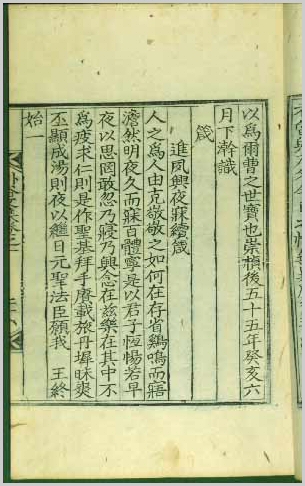 以爲爾曹之世寶也崇禎後五十五年癸亥六
月下澣識
箴
進夙興夜寐續箴
人之爲人由克敬敬之如何在存省鷄鳴而寤
澹然明夜久而寐百體寧是以君子恆惕若早
夜以思罔敢忽乃寢乃興念在玆樂在其中不
爲疲求仁則是作聖基拜手賡載旅丹墀昧爽
丕顯成湯則夜以繼日元聖法臣願我 王終
始一